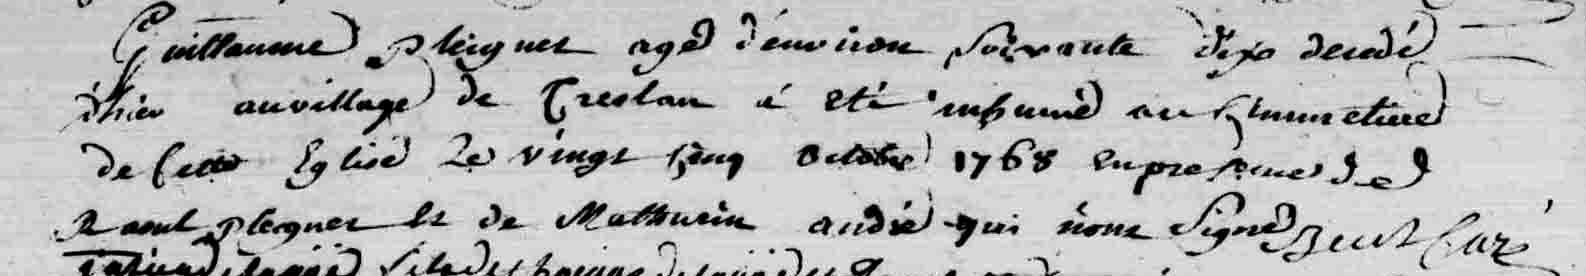 Guillaume pleigner agé d'environ soixante dix decedé
d'hier au village de Treolan a eté inhumé au Simmetiere
de Cette Eglise Le vingt Cinq Octobre 1768 En presence de
Raoul plegner Et de Mathurin andré qui n'ont Signe